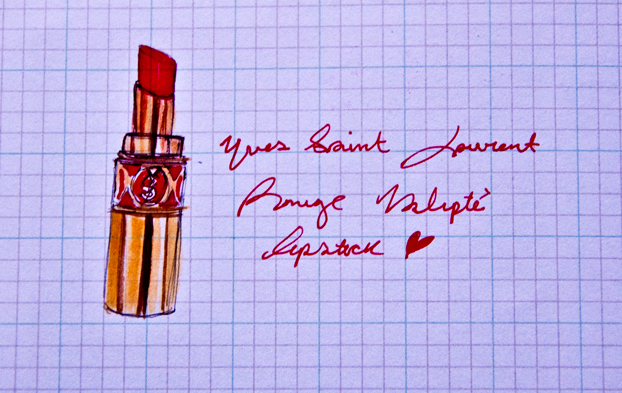 Yves Saint Laurent
Rouge Volupté
lipstick
YSL